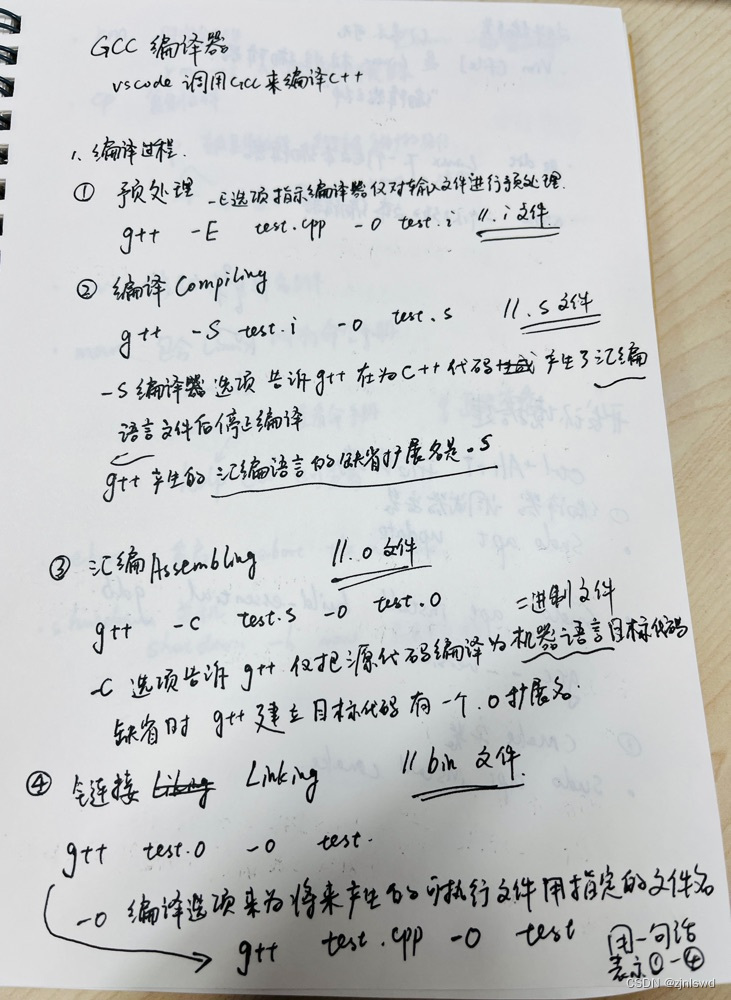 GCC 编译器
vscode 调用GCC来编译C++
1. 编译过程.
① 预处理 -E选项指示编译器仅对输入文件进行预处理.
g++ -E test.cpp -o test.i //.i文件
② 编译 Compiling
g++ -S test.i -o test.s //.s文件
-S 编译器选项 告诉g++ 在为C++代码 产生了汇编
语言文件后停止编译
g++ 产生的汇编语言的缺省扩展名是.s
③ 汇编 Assembling //.o文件
g++ -c test.s -o test.o 二进制文件
-c 选项告诉 g++ 仅把源代码编译为机器语言目标代码
缺省时 g++ 建立目标代码有一个.o扩展名.
④ 连接 Linking //bin文件
g++ test.o -o test.
-o 编译选项来为将来产生的可执行文件用指定的文件名
g++ test.cpp -o test 用一句话
表示①-④
CSDN @zjnlswd